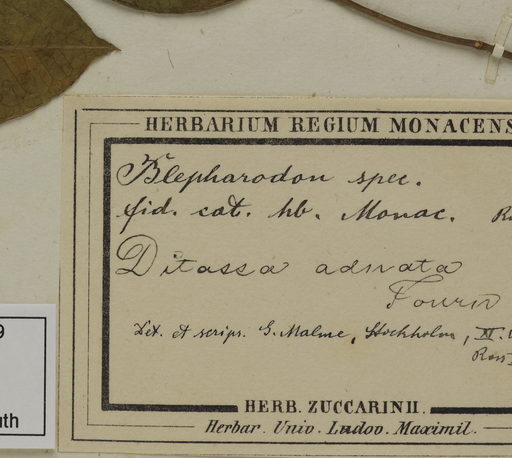 HERBARIUM REGIUM MONACENS
Blepharodon spec.
fid. cat. hb. Monac.
Ditassa adnata
Fourn
Det. et scrips. G. Malme, Stockholm, XI.
Ross
HERB. ZUCCARINII.
Herbar. Univ. Ludov. Maximil.
9
uth